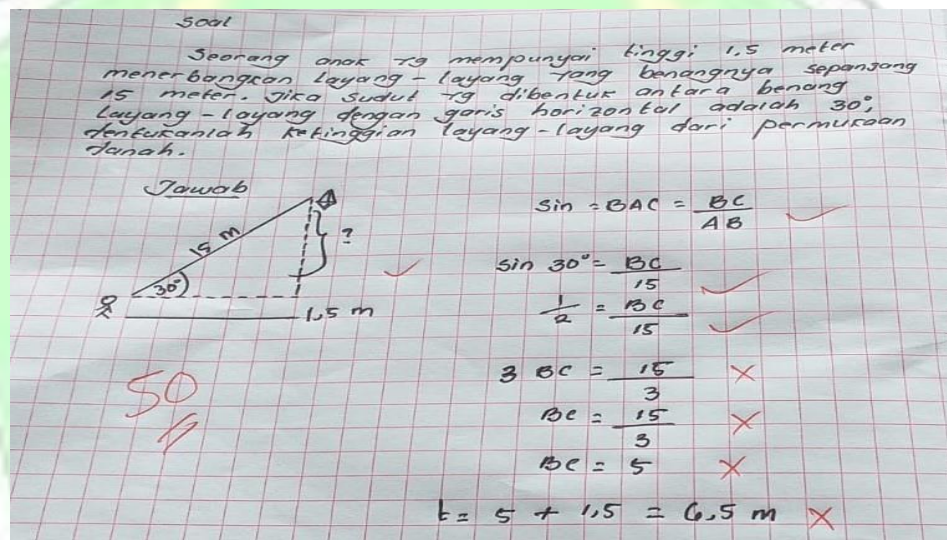 Soal
Seorang anak yg mempunyai tinggi 1.5 meter
menerbangkan layang-layang yang benangnya sepanjang
15 meter. Jika sudut yg dibentuk antara benang
layang-layang dengan garis horizontal adalah 30°,
tentukanlah ketinggian layang-layang dari permukaan
tanah.
Jawab
15 m
?
30°
1,5 m
Sin = BAC = BC / AB
Sin 30° = BC / 15
1/2 = BC / 15
3 BC = 15 / 3
BC = 15 / 3
BC = 5
t = 5 + 1,5 = 6,5 m
50